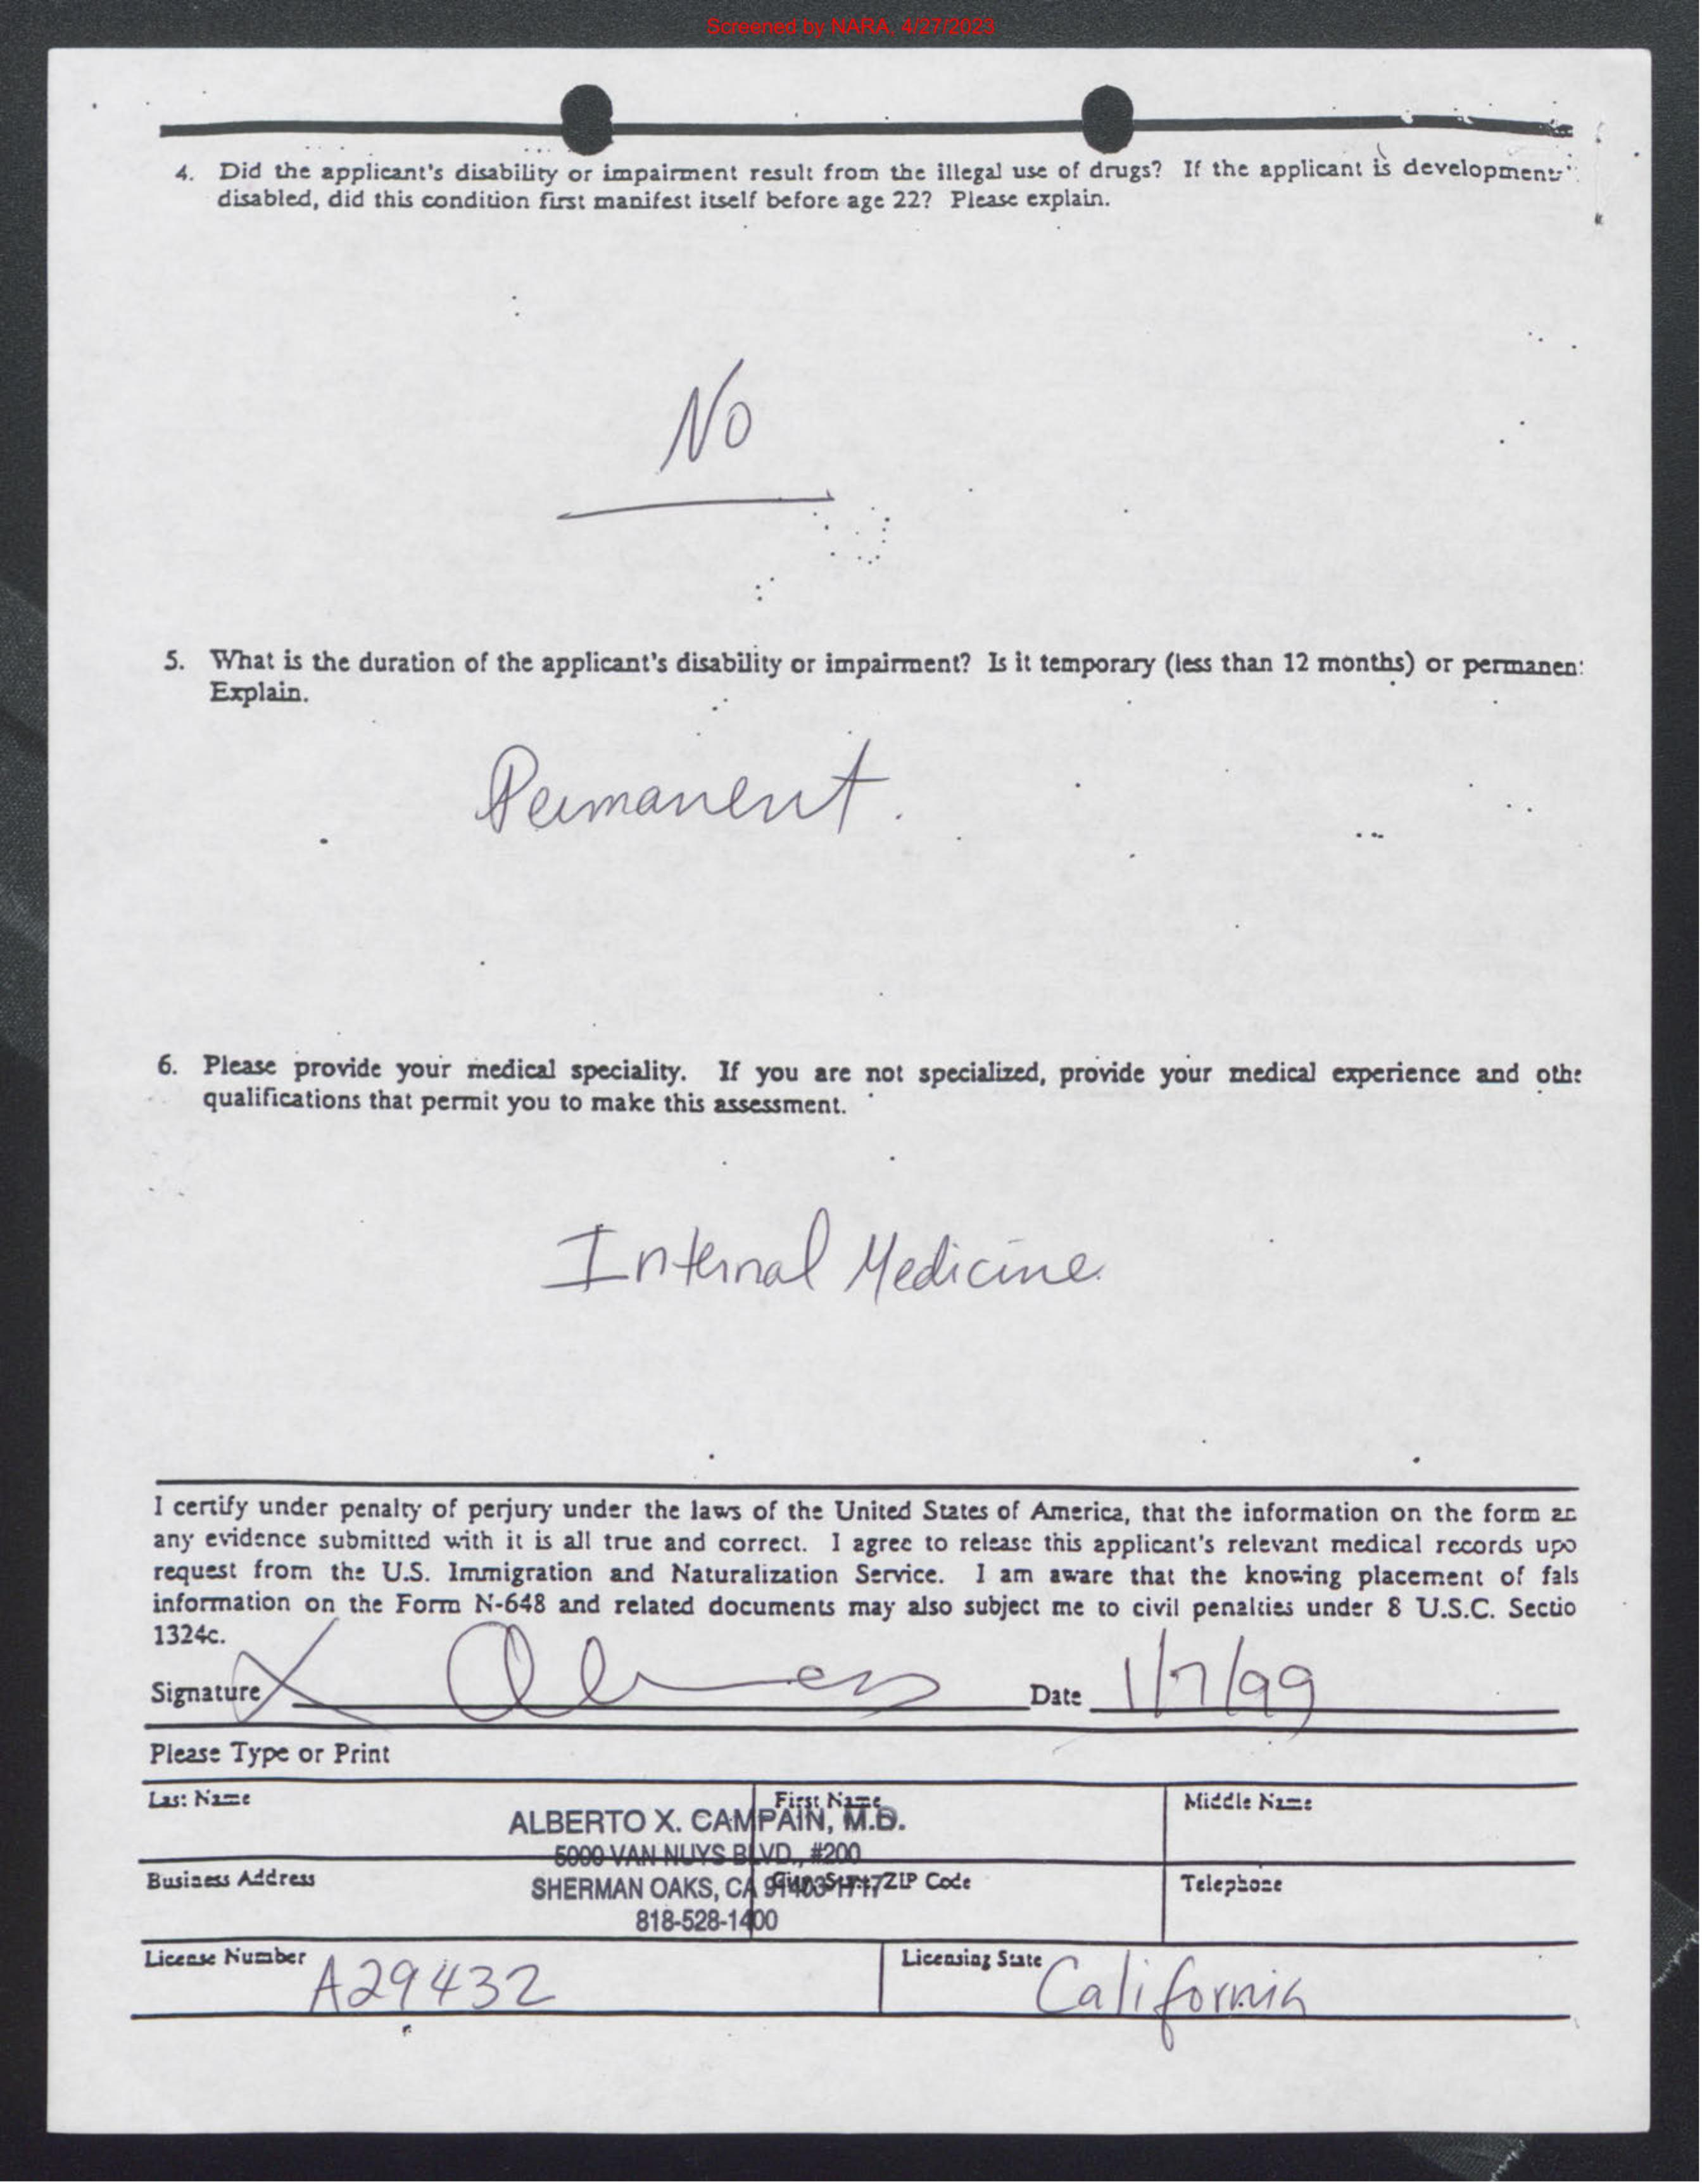 Screened by NARA, 4/27/2023
4. Did the applicant's disability or impairment result from the illegal use of drugs? If the applicant is
disabled, did this condition first manifest itself before age 22? Please explain.
No
5. What is the duration of the applicant's disability or impairment? Is it temporary (less than 12 months) or permanen
Explain.
Permanent.
6. Please provide your medical speciality. If you are not specialized, provide your medical experience and othe
qualifications that permit you to make this assessment.
Internal Medicine
I certify under penalty of perjury under the laws of the United States of America, that the information on the form an
any evidence submitted with it is all true and correct. I agree to release this applicant's relevant medical records upo
request from the U.S. Immigration and Naturalization Service. I am aware that the knowing placement of fals
information on the Form N-648 and related documents may also subject me to civil penalties under 8 U.S.C. Sectio
1324c.
Signature X Date 1/7/99
Please Type or Print
Last Name First Name Middle Name
ALBERTO X. CAMPAIN, M.D.
5000 VAN NUYS BLVD., #200
Business Address ZIP Code Telephone
SHERMAN OAKS, CA 91403-1717
818-528-1400
License Number A29432 Licensing State California